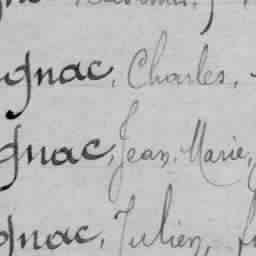 gnac, Charles,
gnac, Jean, Marie,
gnac, Julien,